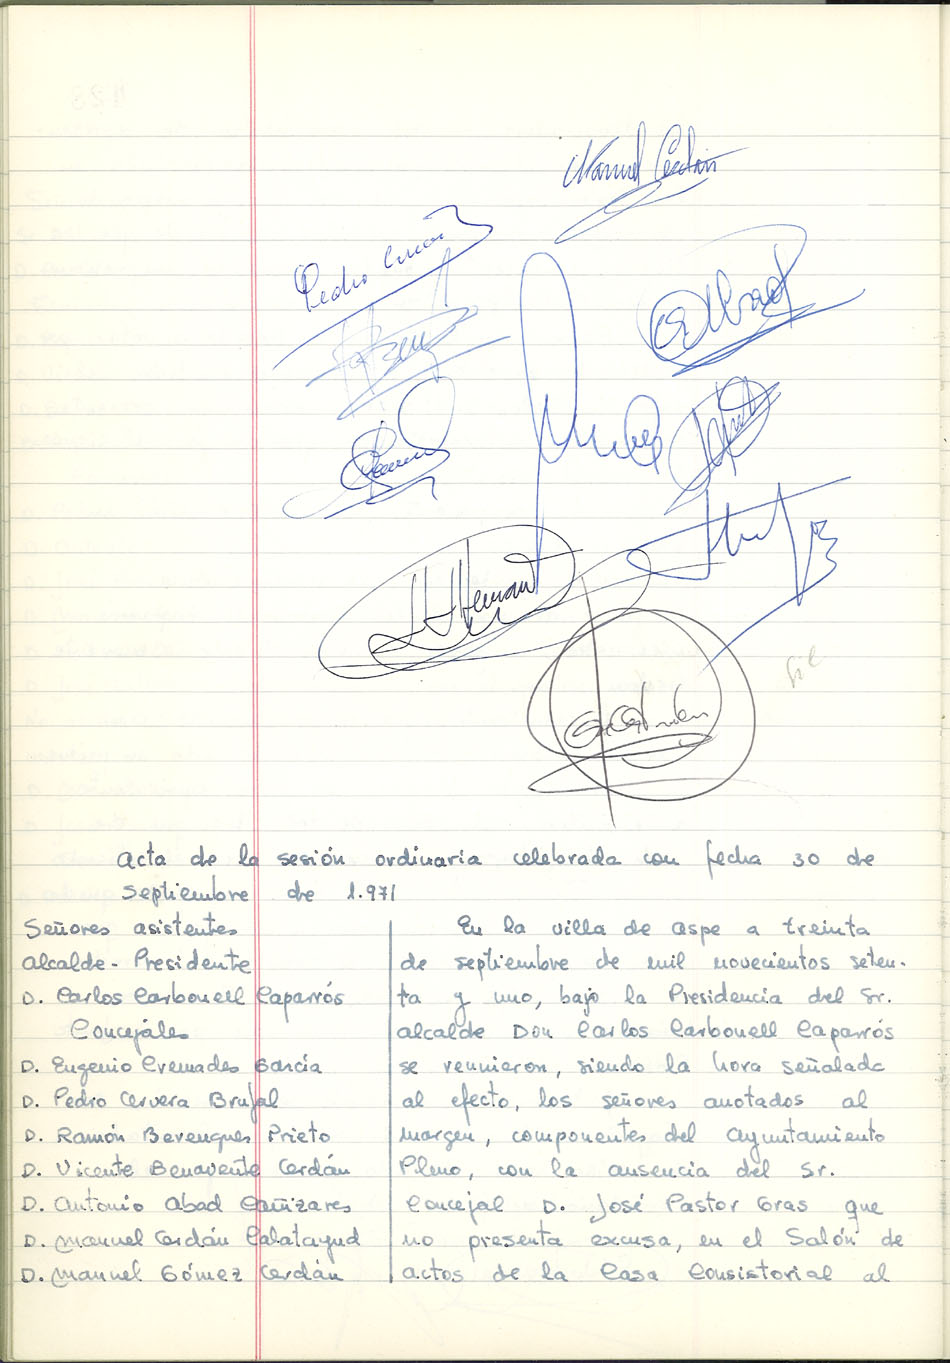 Manuel Cerdán
Pedro
Acta de la sesión ordinaria celebrada con fecha 30 de
Septiembre de 1.971
Señores asistentes
Alcalde-Presidente
D. Carlos Carbonell Caparrós
Concejales
D. Eugenio Cremades García
D. Pedro Cervera Brufal
D. Ramón Berenguer Prieto
D. Vicente Benavente Cerdán
D. Antonio Abad Cañizares
D. Manuel Cerdán Calatayud
D. Manuel Gómez Cerdán
En la villa de Aspe a treinta
de septiembre de mil novecientos seten-
ta y uno, bajo la Presidencia del Sr.
Alcalde Don Carlos Carbonell Caparrós
se reunieron, siendo la hora señalada
al efecto, los señores anotados al
margen, componentes del Ayuntamiento
Pleno, con la ausencia del Sr.
Concejal D. José Pastor Gras que
no presenta excusa, en el Salón de
actos de la Casa Consistorial al